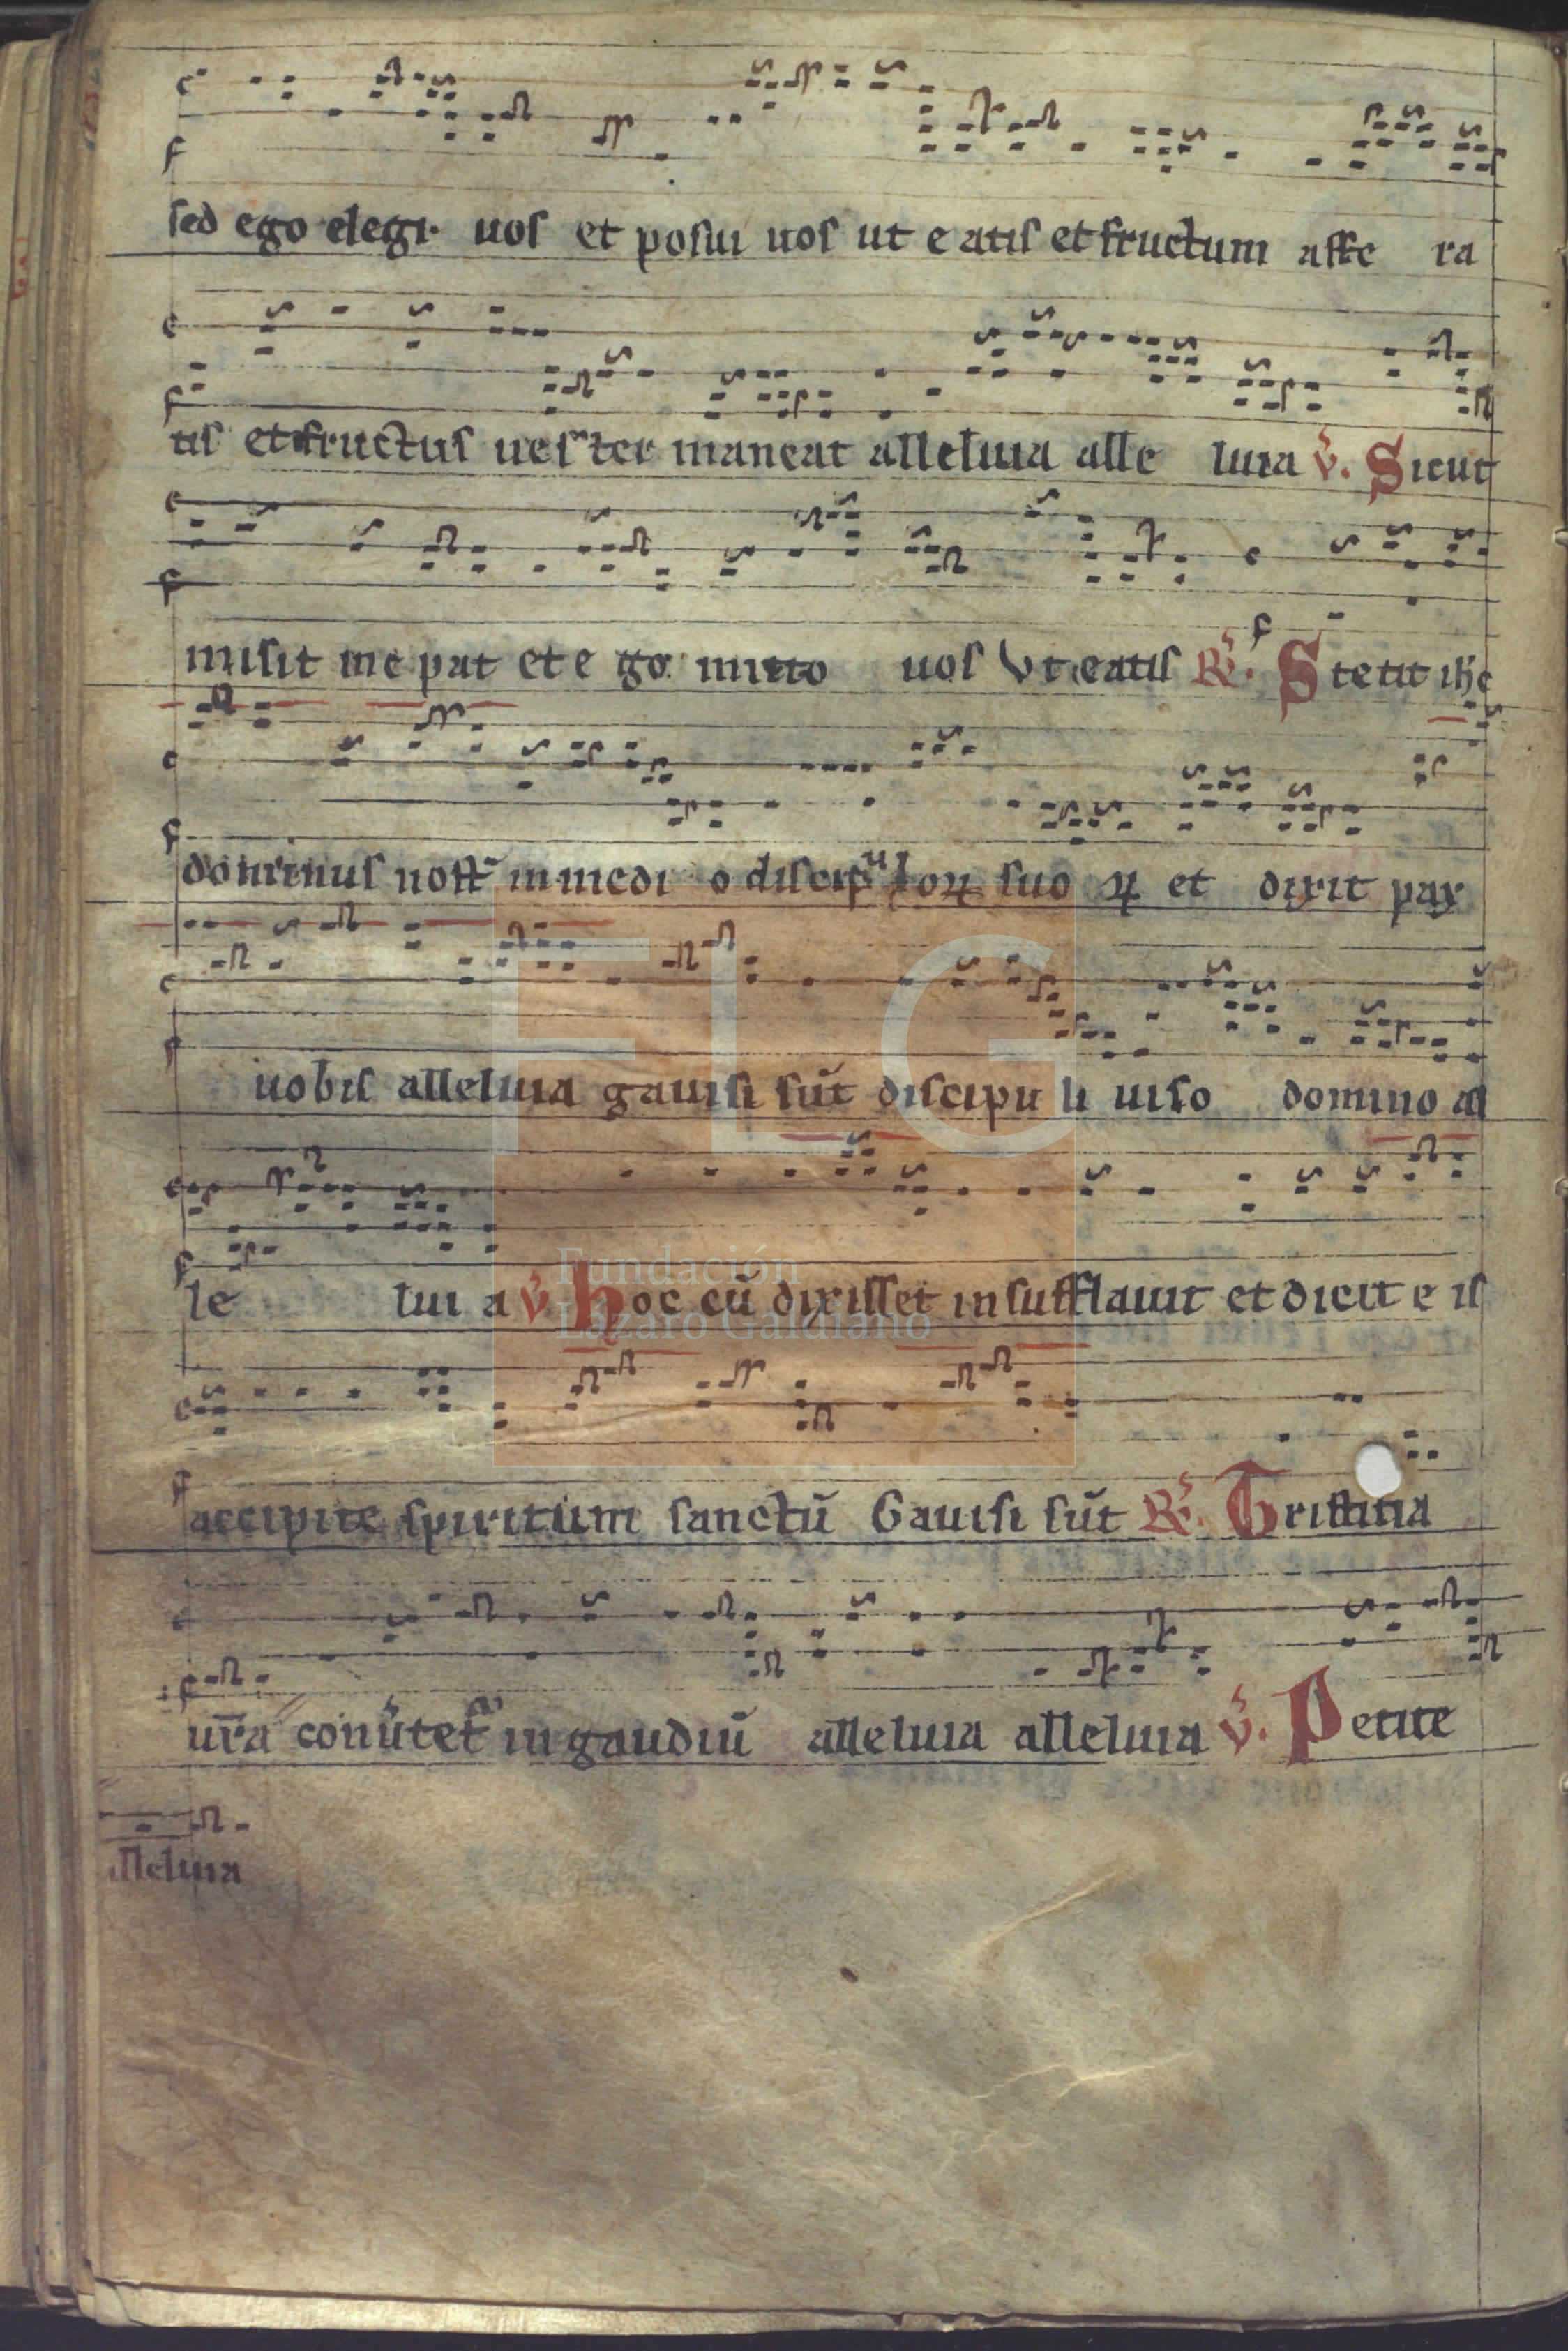 sed ego elegi uos et posui uos ut e atis et fructum affe ra
tis et fructus uester maneat alleluia alle luia v̄. Sicut
misit me pat et e go mitto uos Vt eatis R̄. Stetit ihc
dominus nostr̄ in medi o discip̄uloꝝ suo ꝝ et dixit pax
uobis alleluia gauisi sūt discipu li uiso domino al
le lui a v̄. hoc cū dixisset insufflauit et dicit e is
accipite spiritum sanctū Gauisi sūt R̄. Tristitia
ur̄a conūtet in gaudiū alleluia alleluia v̄. Petite
alleluia
FLG
Fundación
Lázaro Galdiano